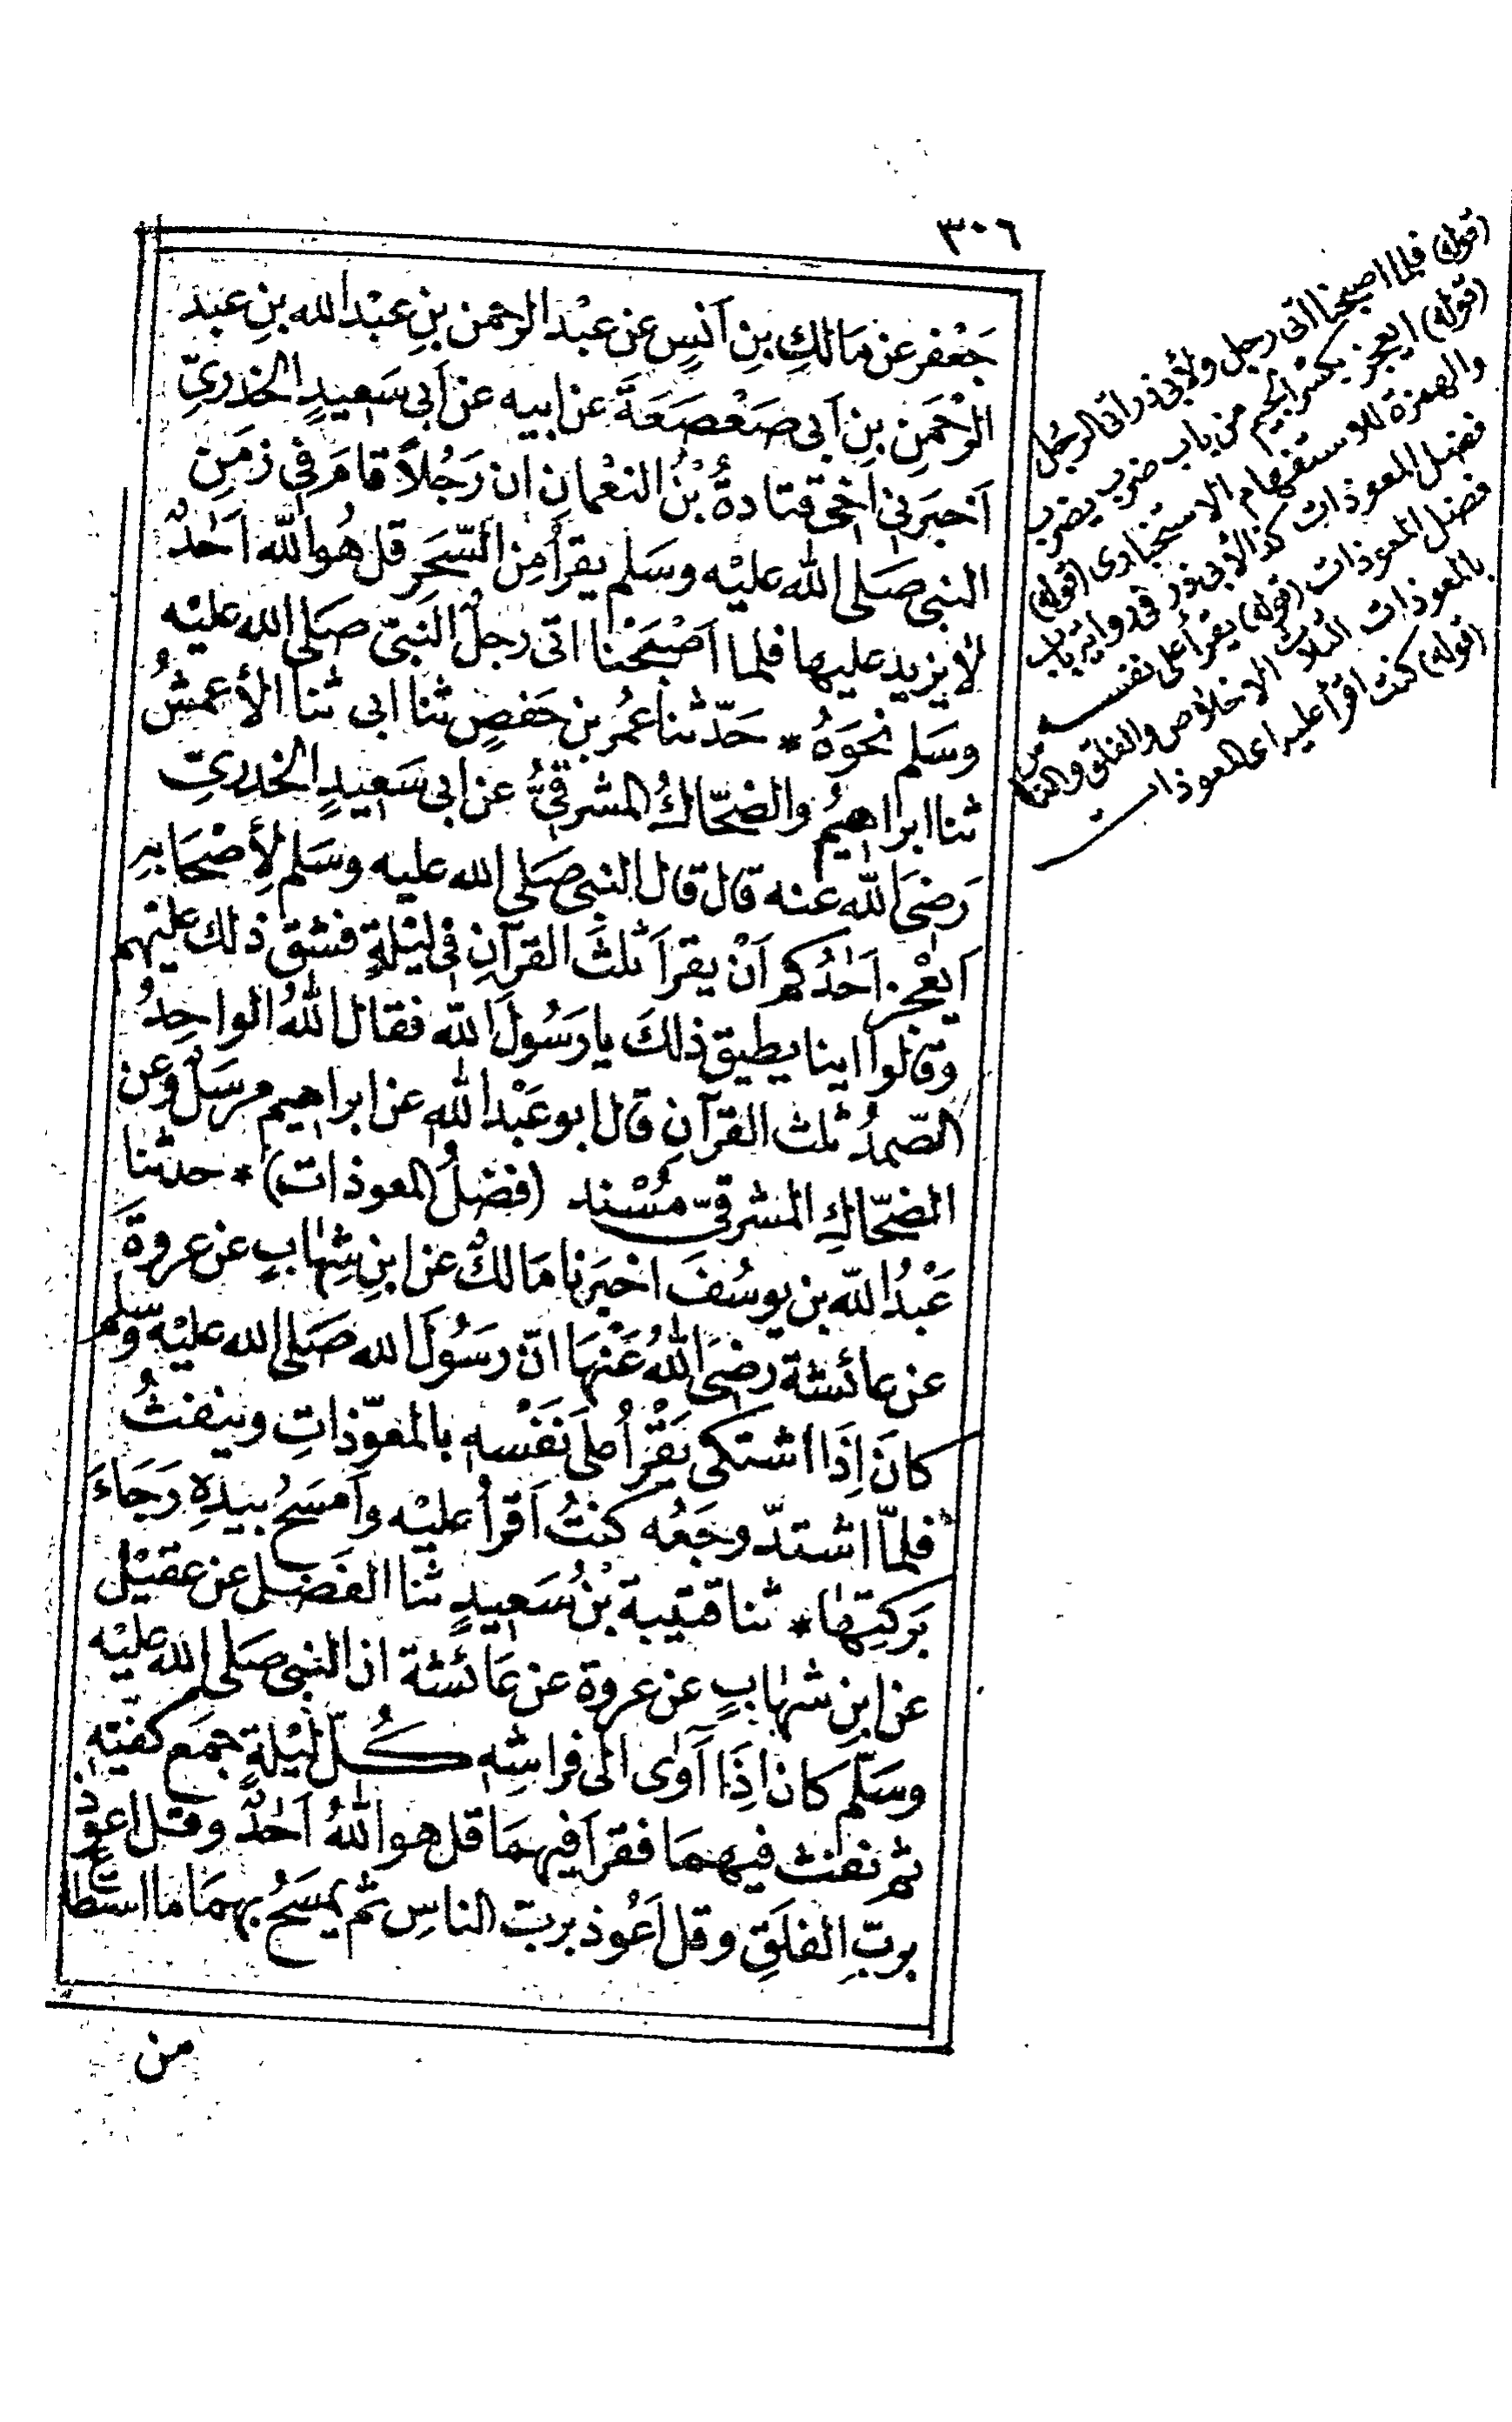 ٣٠٦
جَعْفَر عن مَالكِ بنِ اَنَسٍ عن عبْد الرحمن بنِ عبْد الله بنِ عبد
الرحْمَنِ بنِ اَبى صَعْصَعَةَ عن ابيه عن اَبى سَعيدٍ الخدرىِّ
اَخبَرنى اَخى قتادةُ بْنُ النعْمانِ ان رَجُلاً قامَ فى زمَنِ
النبى صَلى الله عليْه وسَلم يقرأ مِن السَّحَرِ قل هُو الله اَحَدٌ
لا يزيد عليها فلما اَصْبَحْنا اتى رجلٌ النبىّ صَلى الله عليْه
وسَلم نحْوَهُ * حَدّثنا عُمر بن حَفصٍ ثنا ابى ثنا الأعمشُ
ثنا ابراهيمُ والضحّاكُ المشرقىُّ عن ابى سَعيدٍ الخدرىّ
رَضىَ الله عنه قال قال النبى صَلى الله عليه وسَلم لأِصْحَابهِ
اَيعْجز اَحَدُكم اَنْ يقرَأ ثلثَ القرآنِ فى ليْلةٍ فشق ذلك عليْهم
وقالوا اينا يطيق ذلكَ يا رَسُولَ الله فقال اللهُ الواحِدُ
الصّمدُ ثلث القرآنِ قال ابو عَبْد الله عن ابراهيم مرسَلٌ وعن
الضحّاكِ المشرقىّ مُسْند (فضلُ المعوذات) * حدثنا
عَبْدُ الله بن يوسُفَ اخبَرنا مَالكٌ عن ابنِ شِهابٍ عن عروةَ
عن عائشة رضىَ اللهُ عَنْهَا انّ رسُولَ الله صَلى الله عليْه وسلم
كانَ اِذَا اشتكى يَقْرأُ على نَفْسه بالمعوّذاتِ وينفثُ
فلمّا اشتدّ وجَعُه كنتُ اَقرأُ عليْه وأمسَحُ بيدِهِ رَجَاءَ
بَركتِهَا * ثنا قتيبة بْنُ سَعيدٍ ثنا الفَضل عن عقيْلٍ
عن ابنِ شهابٍ عن عروة عن عَائشة ان النبى صَلى الله عليْه
وسَلّم كان اِذَا آوَى الى فراشِه كُلّ ليْلةٍ جمَع كفيْه
ثم نفث فيهمَا فقرَأ فيهمَا قل هو اللهُ اَحَدٌ وقل اعوذ
بربِّ الفلَقِ وقل اَعُوذ برب الناسِ ثم يمسَحُ بهمَا ما استطاع
من
(قوله) فلما اصبحنا اتى رجل ولأبى ذر اتى الرجل
(قوله) ايعجز بكسر الجيم من باب ضرب يضرب
والهمزة للاستفهام الاستخبارى (قوله)
فضل المعوذات كذا لأبى ذر فى رواية باب
فضل المعوذات (قوله) يقرأ على نفسه
بالمعوذات الثلاث الاخلاص والفلق والناس
(قوله) كنت اقرأ عليه اى المعوذات